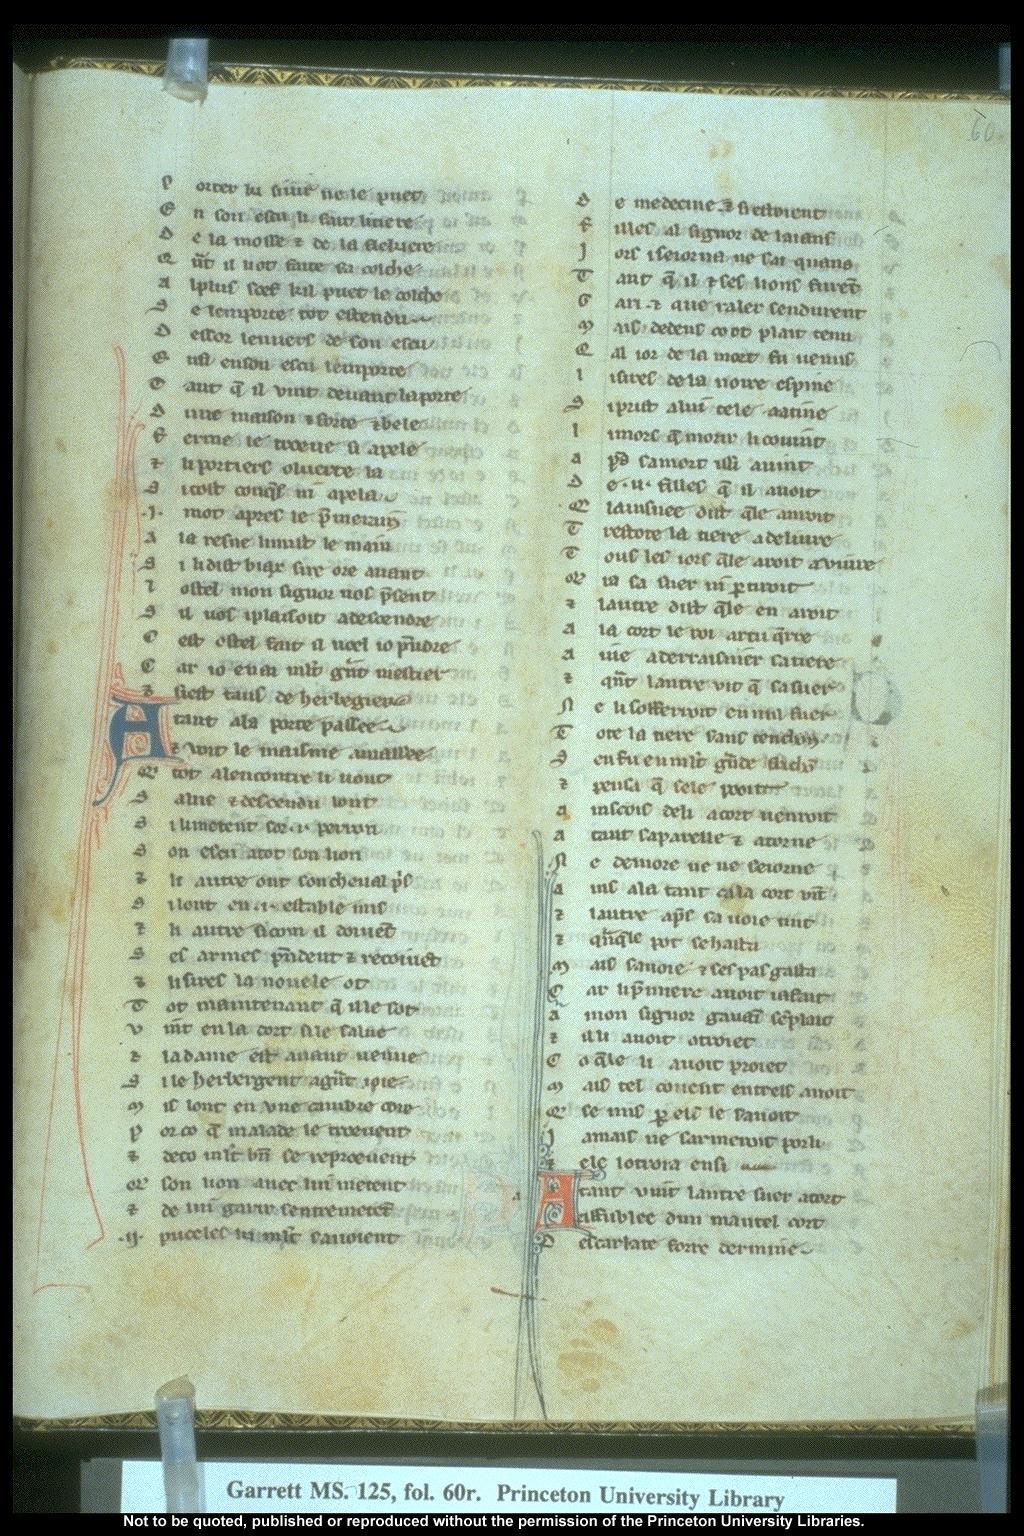 60
P orter lui sivre ne le puet
E n son escu li fait litiere
D e la mosse & de la fielchiere
Q ñt il uot faite sa colche
A lplus soef kil puet le colche
S e lemporte tot estendu
D essor lenuers de son escu
E nsi enson escu lemporte
T ant q̃ il vint deuant laporte
D une maison & forte & bele
F erme le troeue si apele
& li portiers oluerte la
S i tost
.J. mot apres le p̃merain
A la resne
S i li dist biax sire ore auant
L ostel mon signor uos p̃sent
S il uos iplaisoit adescendre
C est ostel fait il uoel io p̃ndre
C ar io enai mlt grãt mestier
& siest tans de herbegier
A tant ala porte passee
& voit le maisnie amassee
Q tot alencontre li uont
S alue & descendu lont
S i li metent sor .i. perron
S on escu atot son lion
& li autre ont son cheual p̃s
S i lont en .i. estable mis
& li autre si com il doiuẽt
S es armes p̃ndent & recoiuẽt
& li sires la nouele ot
T ot maintenant q̃ il le sot
V iñt en la cort si le salue
& la dame est auant uenue
S i le herbergent agrãt ioie
M is lont en vne cambre coie
P or co q̃ malade le troeuent
& deco mlt bñ se reproeuent
Q son lion auec lui metent
& de lui garir sentremetẽt
.ij. puceles ki mlt sauoient
D e medecine & si estoient
F illes al signor de laians
J ors i seiorna ne sai quans
T ant q̃ il & ses lions furẽt
G ari & que raler sendurent
M ais dedens co ot plait tenu
Q al ior de la mort fu uenus
L i sires de la noire espine
S i prist alui tele aatine
L i mors q̃ morir li couint
A p̃s samort issi auint
D e .ii. filles q̃ il auoit
Q lainsnee dist q̃le auroit
T restote la tiere adeliure
T ous les iors q̃le aroit a viure
Q ia sa suer ni partiroit
& lautre dist q̃le en aroit
A la cort le roi artu q̃rre
A
& q̃nt lautre vit q̃ sa suer
N e li sofferroit
T ote la tiere sans tenchon
S
& pensa q̃ sele pooit
A inscois deli acort uenroit
A tant saparelle & atorne
N e demore ne ne seiorne
A ins ala tant cala cort vĩt
& lautre ap̃s sa uoie tint
& q̃nq̃le pot se hasta
M ais sauoie & ses pas gasta
C ar lip̃miere auoit ia fait
A mon signor gauaĩ
& il li auoit otroiet
C o q̃le li auoit proiet
M ais tel couent entrels auoit
Q se nus par els le sauoit
J amais ne sarmeroit por li
& ele lotroia ensi
A tant viñt lautre suer acort
Affublee dun mantel cort
D escarlate forre dermine
Garrett MS. 125, fol. 60r. Princeton University Library
Not to be quoted, published or reproduced without the permission of the Princeton University Libraries.